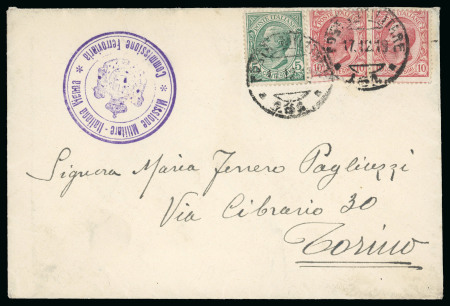 * Missione Militare-Italiana Vienna *
Commissione Ferroviaria
POSTE ITALIANE
5
10
10
17.12.19
Signora Maria Ferrero Pagliuzzi
Via Cibrario 30
Torino